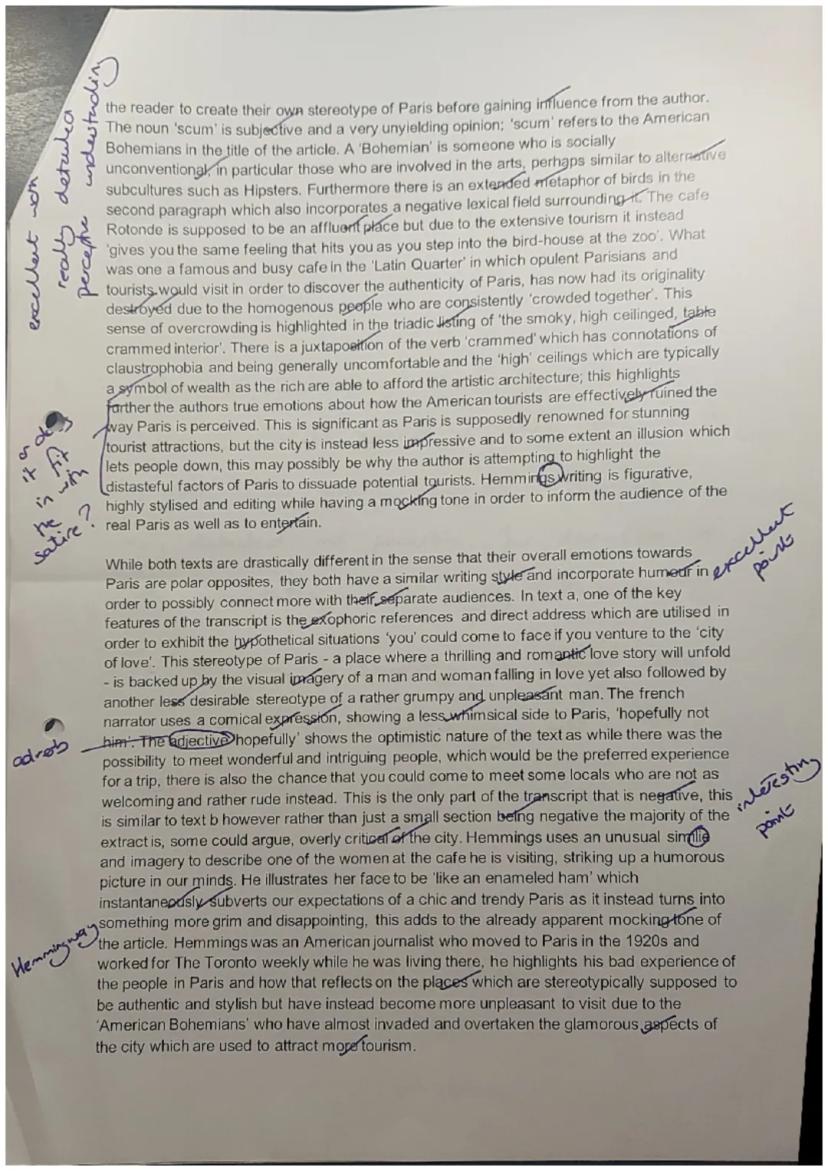 excellent work
really detailed
perceptive understanding
the reader to create their own stereotype of Paris before gaining influence from the author.
The noun 'scum' is subjective and a very unyielding opinion; 'scum' refers to the American
Bohemians in the title of the article. A 'Bohemian' is someone who is socially
unconventional, in particular those who are involved in the arts, perhaps similar to alternative
subcultures such as Hipsters. Furthermore there is an extended metaphor of birds in the
second paragraph which also incorporates a negative lexical field surrounding it. The cafe
Rotonde is supposed to be an affluent place but due to the extensive tourism it instead
'gives you the same feeling that hits you as you step into the bird-house at the zoo'. What
was one a famous and busy cafe in the 'Latin Quarter' in which opulent Parisians and
tourists would visit in order to discover the authenticity of Paris, has now had its originality
destroyed due to the homogenous people who are consistently 'crowded together'. This
sense of overcrowding is highlighted in the triadic listing of 'the smoky, high ceilinged, table
crammed interior'. There is a juxtaposition of the verb 'crammed' which has connotations of
claustrophobia and being generally uncomfortable and the 'high' ceilings which are typically
a symbol of wealth as the rich are able to afford the artistic architecture; this highlights
further the authors true emotions about how the American tourists are effectively ruined the
way Paris is perceived. This is significant as Paris is supposedly renowned for stunning
tourist attractions, but the city is instead less impressive and to some extent an illusion which
lets people down, this may possibly be why the author is attempting to highlight the
distasteful factors of Paris to dissuade potential tourists. Hemmings writing is figurative,
highly stylised and editing while having a mocking tone in order to inform the audience of the
real Paris as well as to entertain.
or does
it fit
in with
the
satire?
While both texts are drastically different in the sense that their overall emotions towards
Paris are polar opposites, they both have a similar writing style and incorporate humour in
order to possibly connect more with their separate audiences. In text a, one of the key
features of the transcript is the exophoric references and direct address which are utilised in
order to exhibit the hypothetical situations 'you' could come to face if you venture to the 'city
of love'. This stereotype of Paris - a place where a thrilling and romantic love story will unfold
- is backed up by the visual imagery of a man and woman falling in love yet also followed by
another less desirable stereotype of a rather grumpy and unpleasant man. The french
narrator uses a comical expression, showing a less whimsical side to Paris, 'hopefully not
him'. The adjective 'hopefully' shows the optimistic nature of the text as while there was the
possibility to meet wonderful and intriguing people, which would be the preferred experience
for a trip, there is also the chance that you could come to meet some locals who are not as
welcoming and rather rude instead. This is the only part of the transcript that is negative, this
is similar to text b however rather than just a small section being negative the majority of the
extract is, some could argue, overly critical of the city. Hemmings uses an unusual similie
and imagery to describe one of the women at the cafe he is visiting, striking up a humorous
picture in our minds. He illustrates her face to be 'like an enameled ham' which
instantaneously subverts our expectations of a chic and trendy Paris as it instead turns into
something more grim and disappointing, this adds to the already apparent mocking tone of
the article. Hemmings was an American journalist who moved to Paris in the 1920s and
worked for The Toronto weekly while he was living there, he highlights his bad experience of
the people in Paris and how that reflects on the places which are stereotypically supposed to
be authentic and stylish but have instead become more unpleasant to visit due to the
'American Bohemians' who have almost invaded and overtaken the glamorous aspects of
the city which are used to attract more tourism.
excellent
point
adverb
interesting
point
Hemmingway